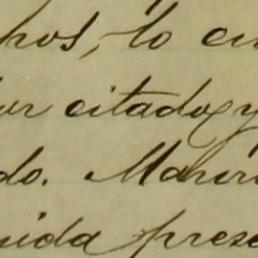 hos, lo en
or citado y
do. Manri
uida prese